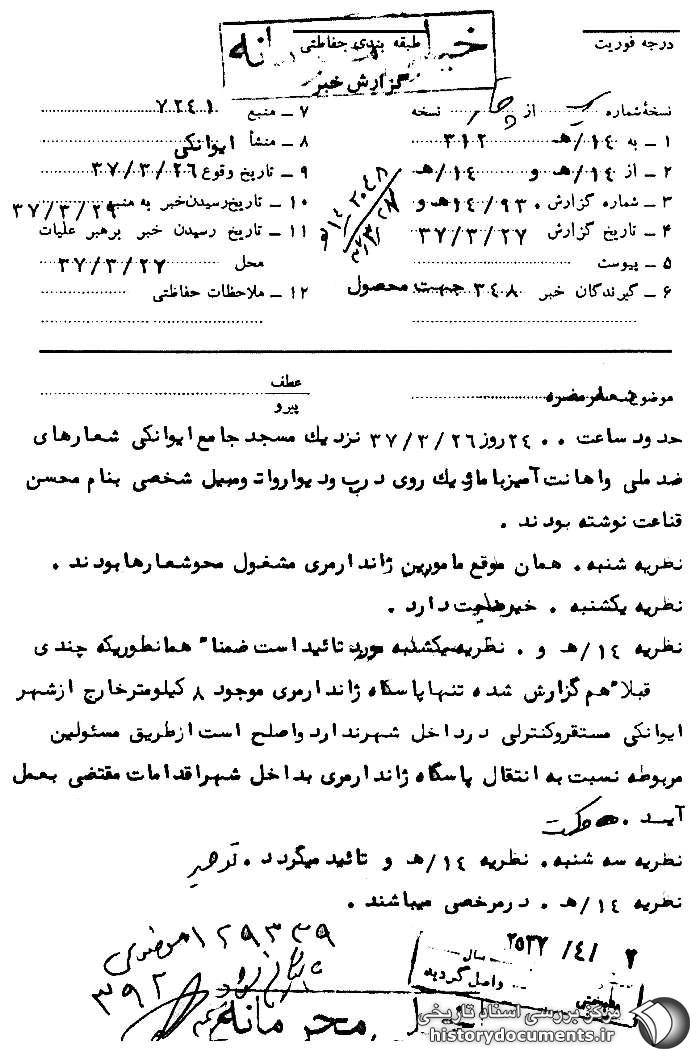 درجه فوریت
طبقه بندی حفاظتی
گزارش خبر
نسخهٔ شماره یک از چهار نسخه
۱ ـ به ۱۴/هـ ۳۱۲
۲ ـ از ۱۴/هـ و ۱۴/هـ
۳ ـ شماره گزارش ۹۳۰/۱۴هـ و
۴ ـ تاریخ گزارش ۳۷/۳/۲۷
۵ ـ پیوست
۶ ـ گیرندگان خبر ۳۴۸ جهت محصول
۷ ـ منبع ۷۲۴۱
۸ ـ منشأ ایوانکی
۹ ـ تاریخ وقوع ۳۷/۳/۲۶
۱۰ ـ تاریخ رسیدن خبر به منبع ۳۷/۳/۲۹
۱۱ ـ تاریخ رسیدن خبر برهبر علیات
محل ۳۷/۳/۲۷
۱۲ ـ ملاحظات حفاظتی
موضوع شعار مضره
عطف
پیرو
حدود ساعت ۲۴۰۰ روز ۳۷/۳/۲۶ نزدیك مسجد جامع ایوانکی شعارهای
ضد ملی واهانت آمیزبا ماژیك روی درب ودیواروا تومبیل شخصی بنام محسن
قناعت نوشته بودند .
نظریه شنبه . همان موقع مامورین ژاندارمری مشغول محوشعارهابودند .
نظریه یکشنبه . خبر صحت دارد .
نظریه ۱۴/هـ و . نظریه یکشنبه مورد تائیداست ضمنا" همانطوریکه چندی
قبلا" هم گزارش شده تنها پاسگاه ژاندارمری موجود ۸ کیلومترخارج ازشهر
ایوانکی مستقروکنترلی درداخل شهرنداردواصلح است ازطریق مسئولین
مربوطه نسبت به انتقال پاسگاه ژاندارمری بداخل شهراقدامات مقتضی بعمل
آید . حکمت
نظریه سه شنبه. نظریه ۱۴/هـ و تائید میگردد .
نظریه ۱۴/هـ . درمرخصی میباشند .
۱۲۹۳۳۹
۳۹۲
۲۵۳۷/۴/۲
سال
واصل گردید
محرمانه
مرکز بررسی اسناد تاریخی
historydocuments.ir